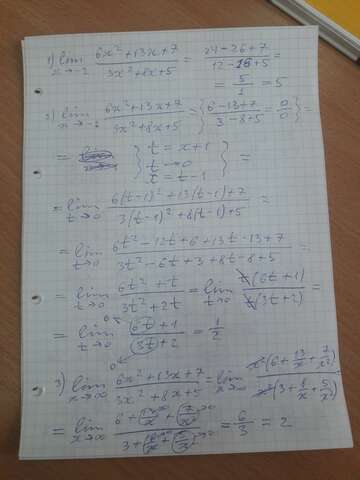 1) lim x→-2 (6x²+13x+7)/(3x²+8x+5) = (24-26+7)/(12-16+5) =
= 5/1 = 5
2) lim x→-1 (6x²+13x+7)/(3x²+8x+5) = {(6-13+7)/(3-8+5) = 0/0} =
= { t = x+1 t→0 x = t-1 } =
= lim t→0 (6(t-1)²+13(t-1)+7)/(3(t-1)²+8(t-1)+5) =
= lim t→0 (6t²-12t+6+13t-13+7)/(3t²-6t+3+8t-8+5) =
= lim t→0 (6t²+t)/(3t²+2t) = lim t→0 t(6t+1)/t(3t+2) =
= lim t→0 (6t+1)/(3t+2) = 1/2
3) lim x→∞ (6x²+13x+7)/(3x²+8x+5) = lim x→∞ x²(6+13/x+7/x²)/x²(3+8/x+5/x²)
= lim x→∞ (6+13/x+7/x²)/(3+8/x+5/x²) = 6/3 = 2